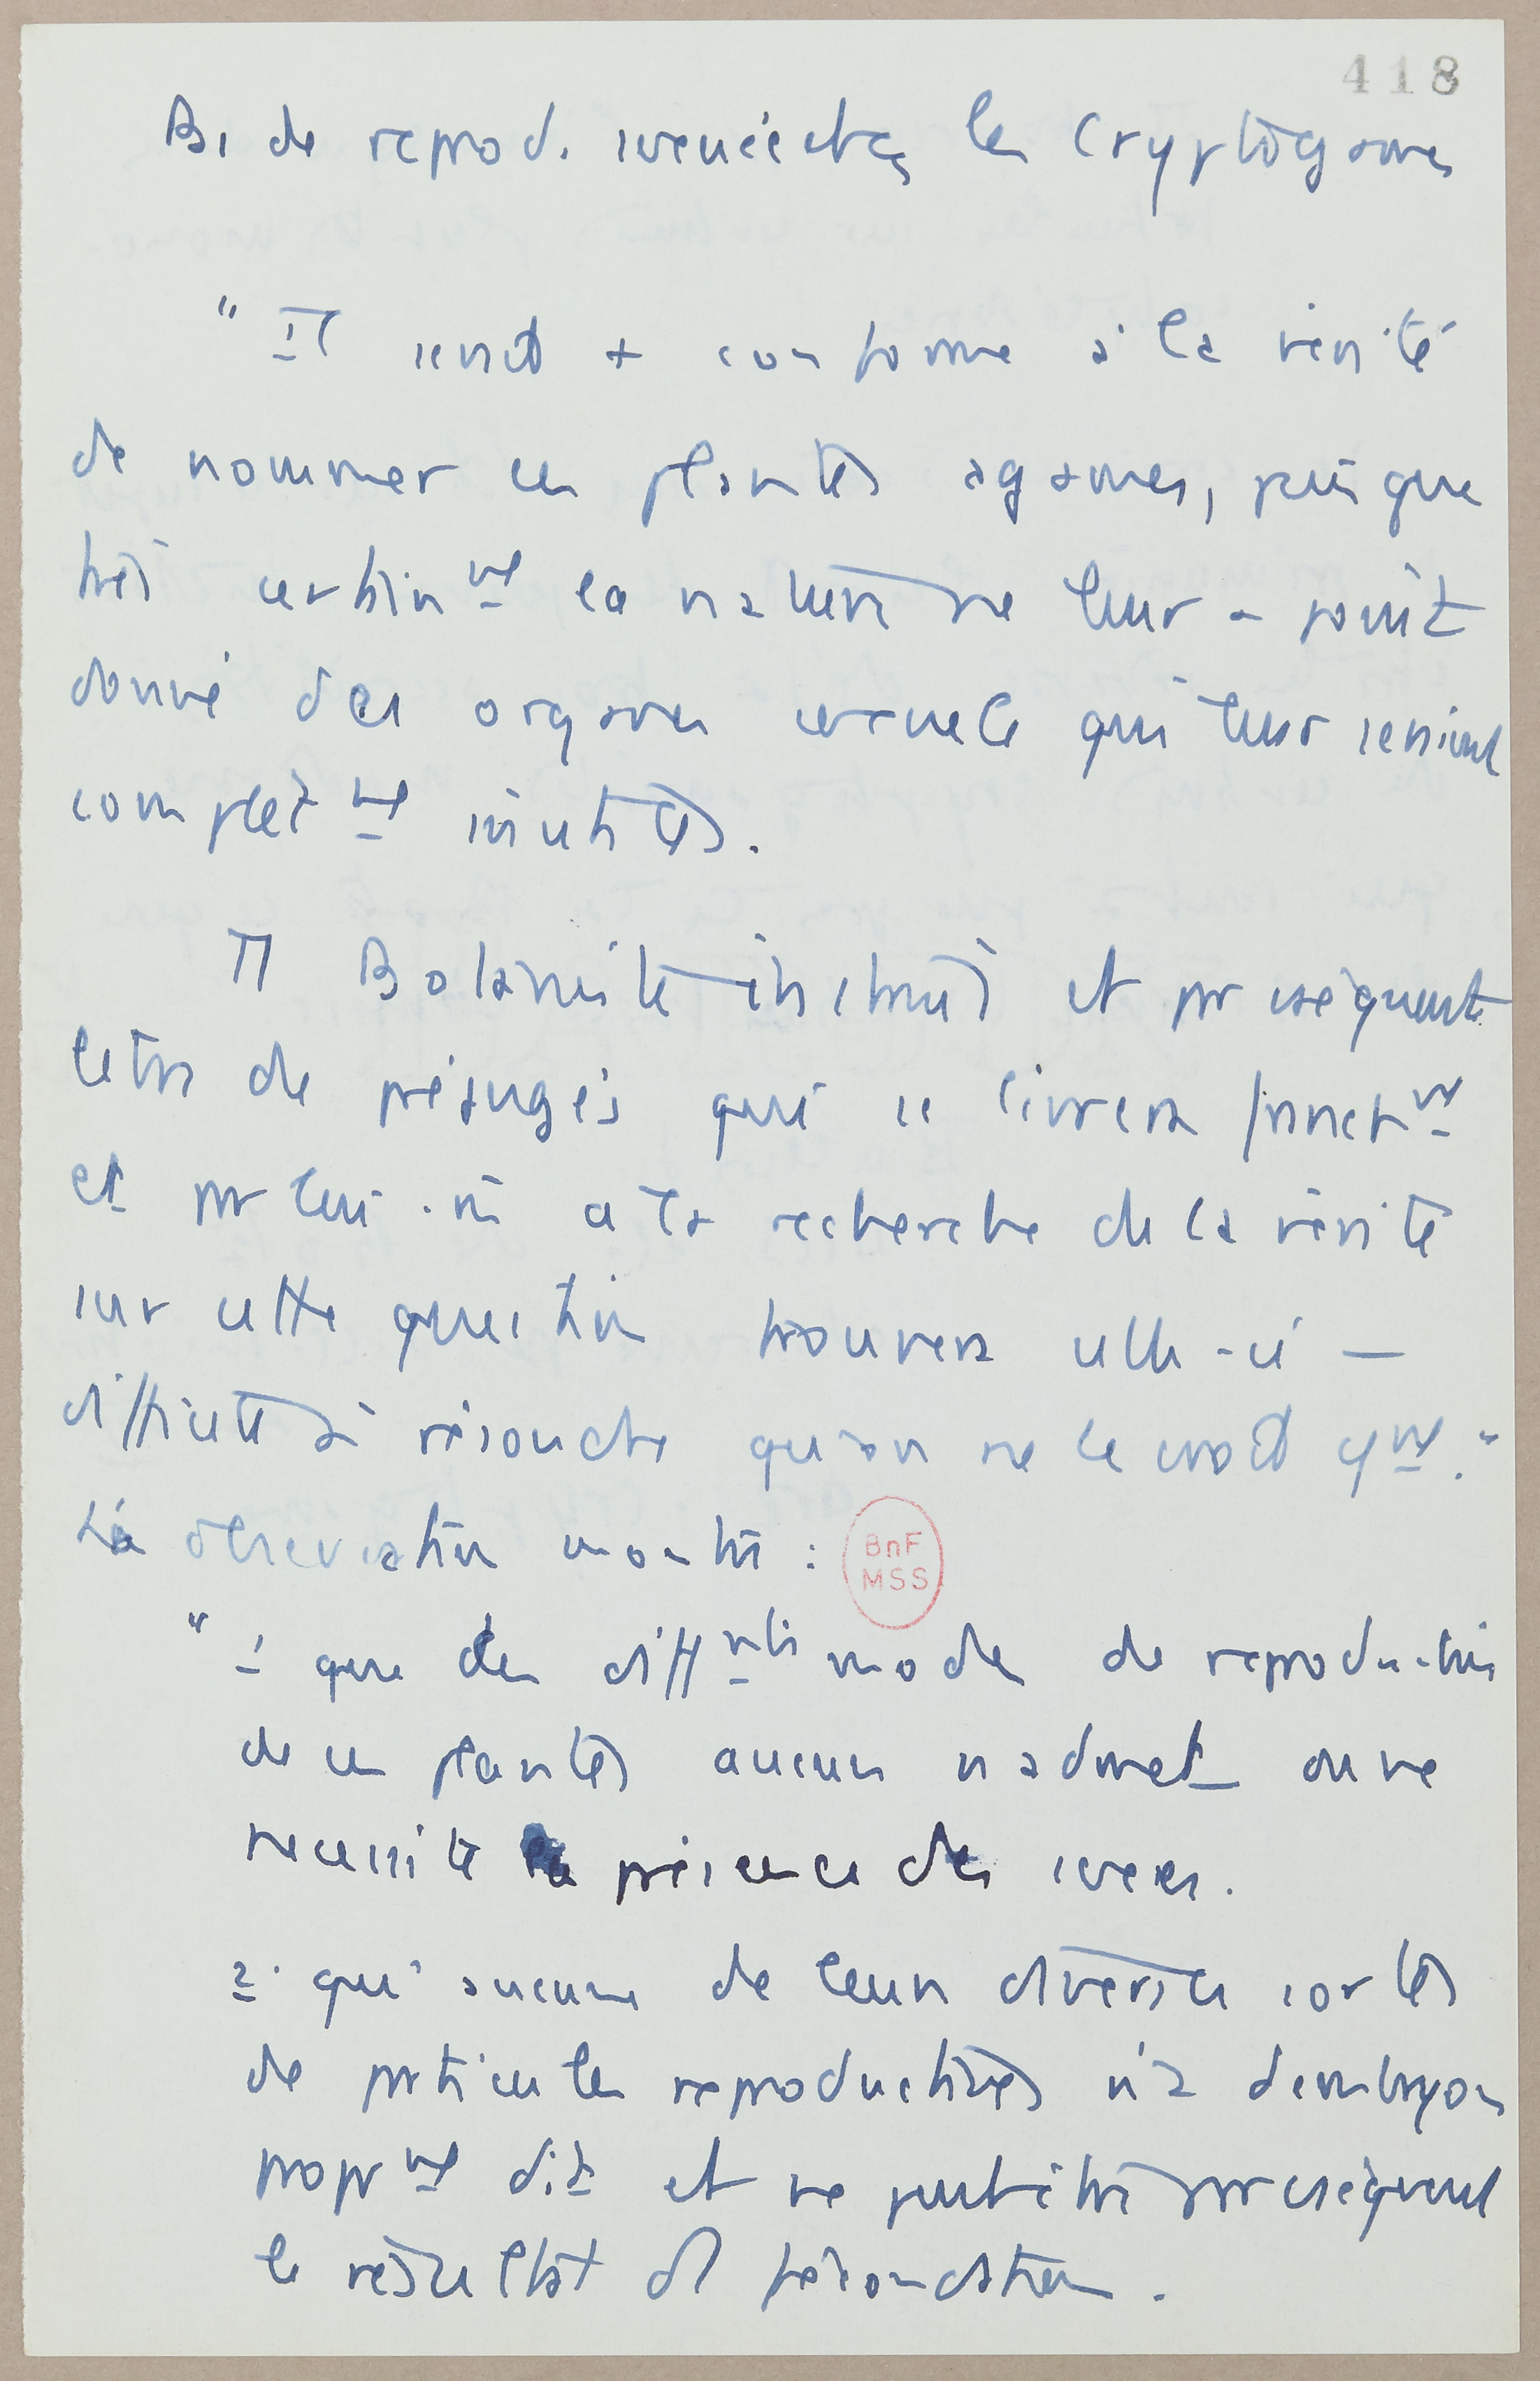 418
de reprod. sexuée chez les Cryptogames
" Il serait + conforme à la vérité
de nommer ces plantes agames, puisque
très certainmt la nature ne leur a point
donné des organes sexuels qui leur seraient
complètmt inutiles.
Tt Botaniste instruit et pr cséquent
libre de préjugés qui se livrera
et pr lui-m à la recherche de la vérité
sur cette question trouvera celle-ci –
difficile à résoudre qu'on ne le croit cmt."
La observation montre :
BnF
MSS
" 1 que des diffnts modes de reproduction
de ces plantes aucun n'admet ou ne
necessite la présence des sexes.
2. qu'aucune de leurs diverses sortes
de prticules reproductives n'a d'embryon
proprmt dit et ne peut être pr cséquent
le résultat d fécondation.